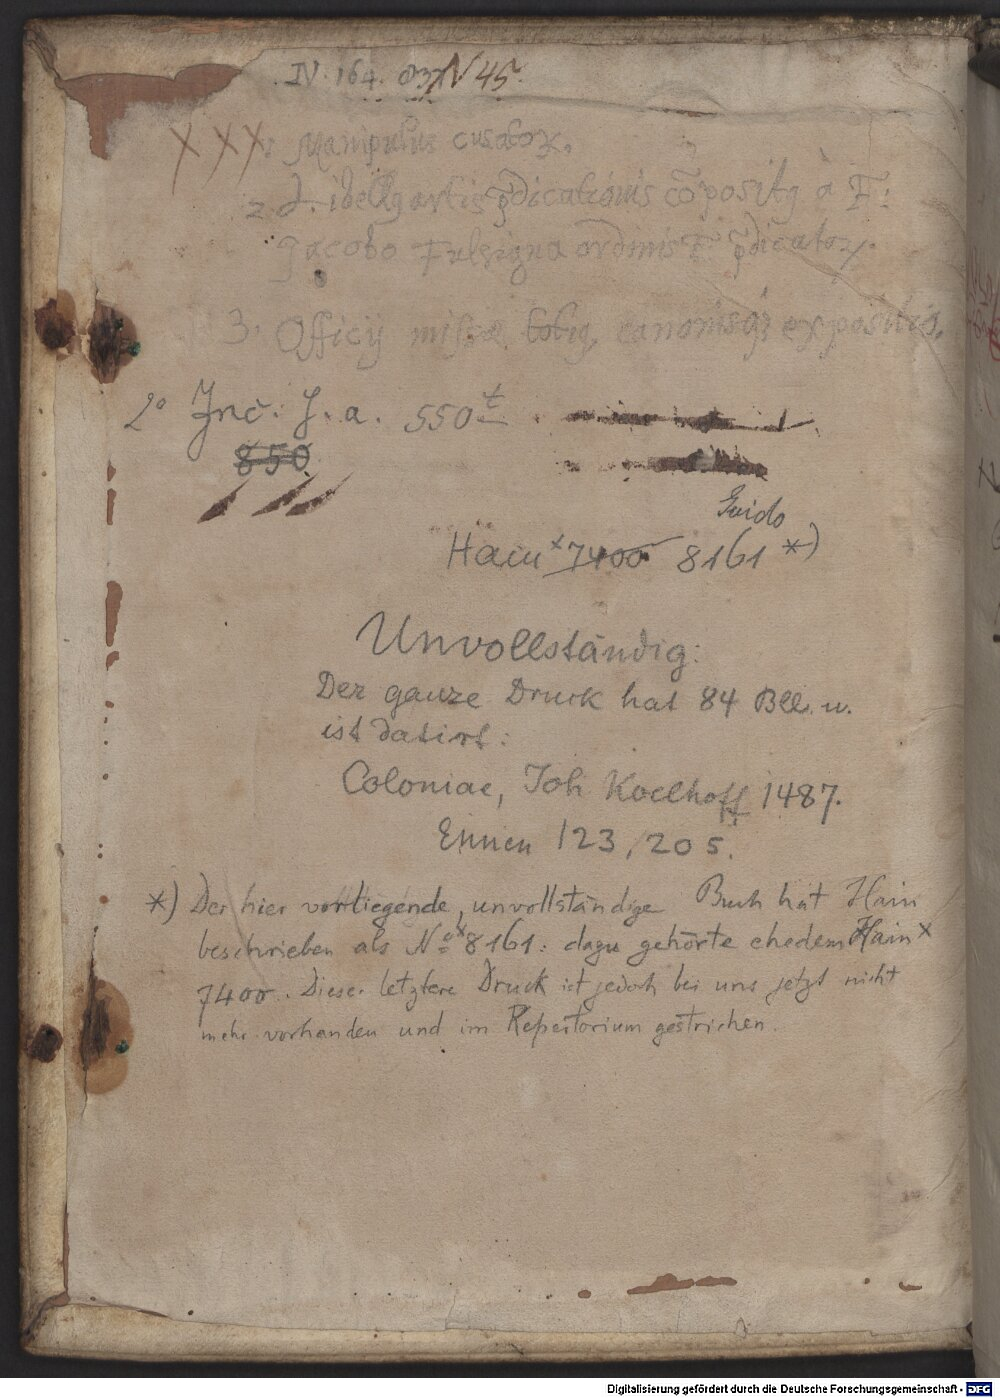 IV. 164. N 45.
Manipulus curatoꝝ.
2 Libellꝰ artis p̄dicationis cōpositꝰ à F:
Jacobo Fusignano ordinis F. p̄dicatoꝝ.
3. Officij missæ totiꝰ, canonisqꝫ expositio.
2° Inc. s. a. 550 t
850
Guido
Hain x 7400 8161 *)
Unvollständig:
Der ganze Druck hat 84 Bll. u.
ist datirt:
Coloniae, Joh Koelhoff 1487.
Ennen 123, 205.
*) Der hier vorliegende, unvollständige Buch hat Hain
beschrieben als No x 8161: dazu gehörte ehedem Hain x
7400. Dieser letztere Druck ist jedoch bei uns jetzt nicht
mehr vorhanden und im Repertorium gestrichen.
Digitalisierung gefördert durch die Deutsche Forschungsgemeinschaft - DFG